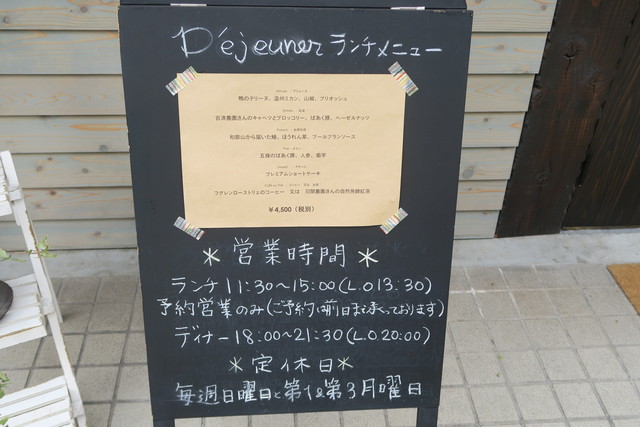 Déjeuner ランチメニュー
鴨のテリーヌ、温州ミカン、山椒、ブリオッシュ
農園さんのキャベツとブロッコリー、ばあく豚、ヘーゼルナッツ
和歌山から届いた鰆、ほうれん草、ブールブランソース
五條のばあく豚、人参、菊芋
プレミアムショートケーキ
フグレンローストリェのコーヒー 又は 羽間農園さんの自然発酵紅茶
¥4,500（税別）
＊営業時間＊
ランチ 11:30〜15:00(L.O13:30)
予約営業のみ(ご予約は前日まで承っております)
ディナー 18:00〜21:30(L.O.20:00)
＊定休日＊
毎週日曜日と第1&第3月曜日